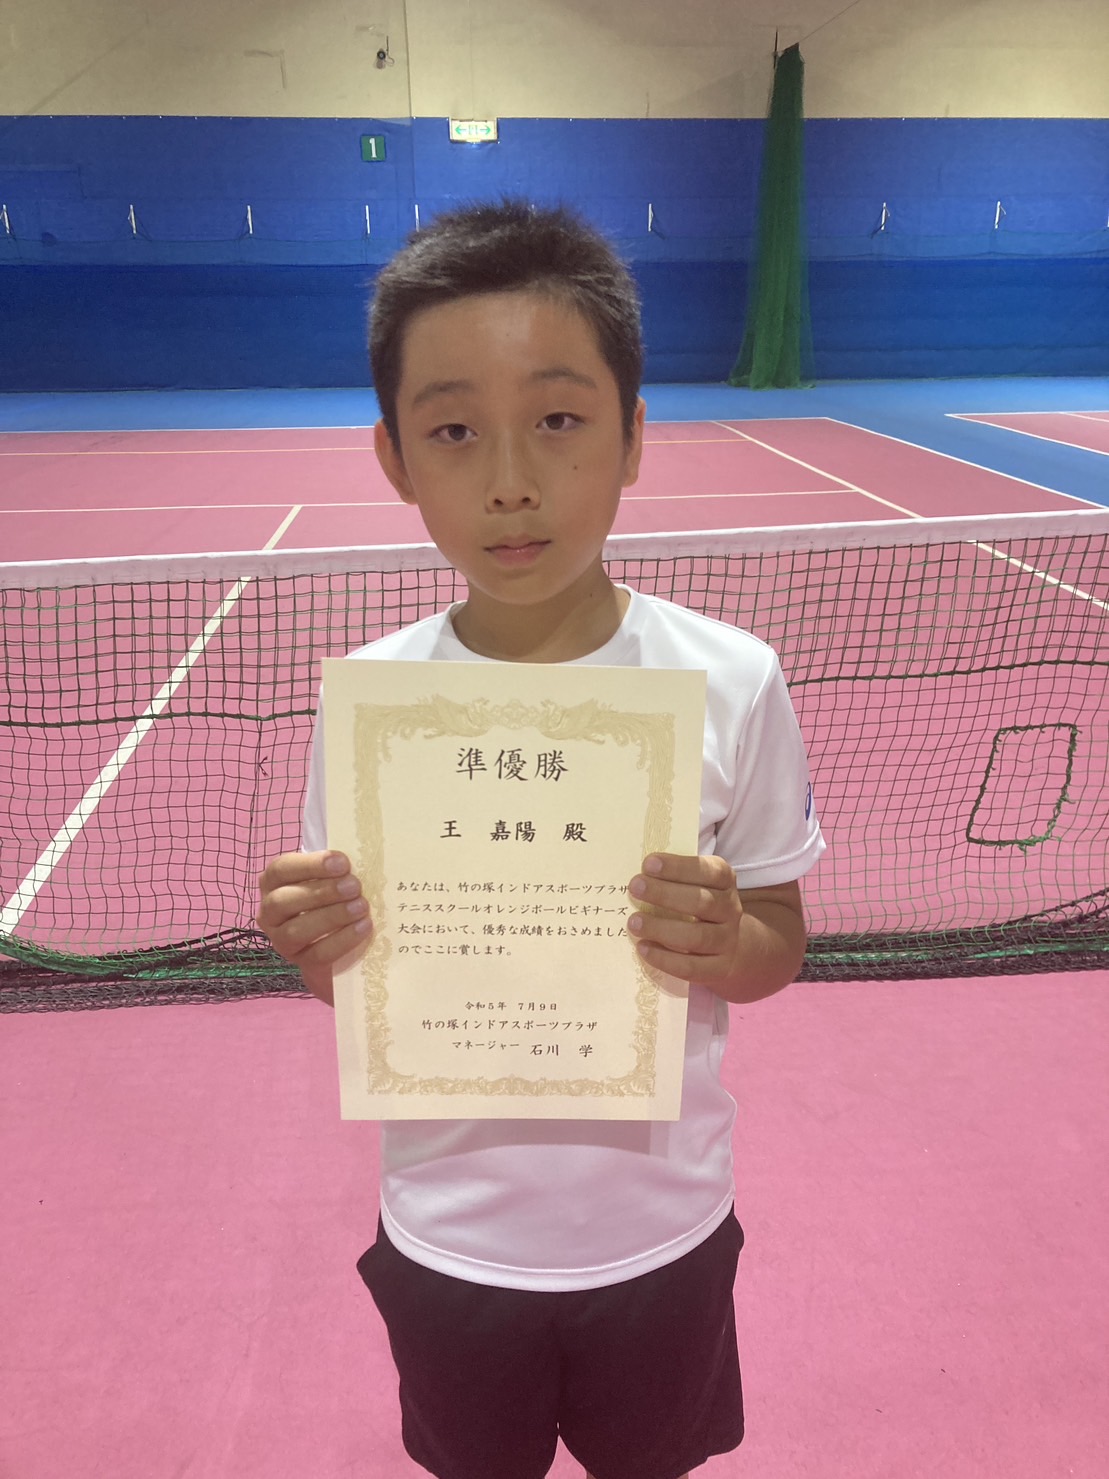 1
準優勝
王 嘉陽 殿
あなたは、竹の塚インドアスポーツプラザ
テニススクールオレンジボールビギナーズ
大会において、優秀な成績をおさめました
のでここに賞します。
令和5年 7月9日
竹の塚インドアスポーツプラザ
マネージャー 石川 学